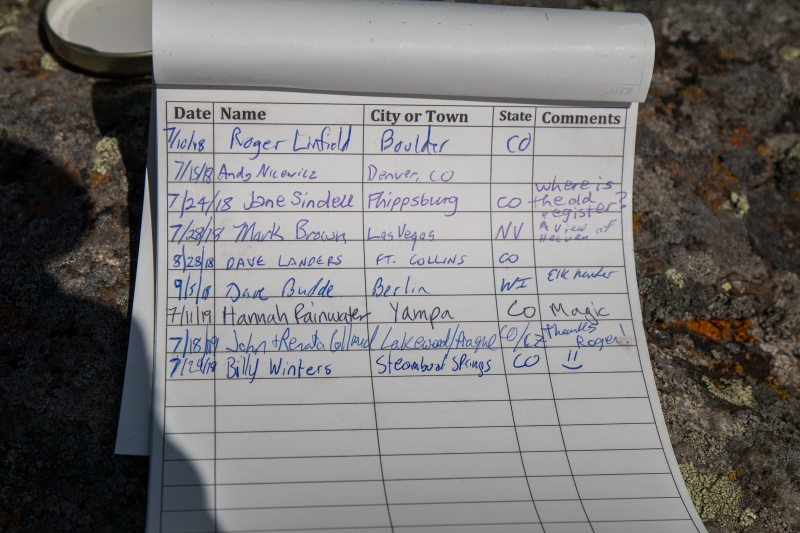 Date Name City or Town State Comments
7/10/18 Roger Linfield Boulder CO
7/15/18 Andy Nicewicz Denver, CO
7/24/18 Jane Sindell Phippsburg CO where is the old register?
7/28/18 Mark Brown Las Vegas NV A view of Heaven
8/28/18 DAVE LANDERS FT. COLLINS CO
9/5/18 Dave Budde Berlin WI Elk hunter
7/11/19 Hannah Rainwater Yampa CO Magic
7/18/19 John + Renata Lakewood/Prague CO/CZ thanks Roger!
Billy Winters Steamboat Springs CO